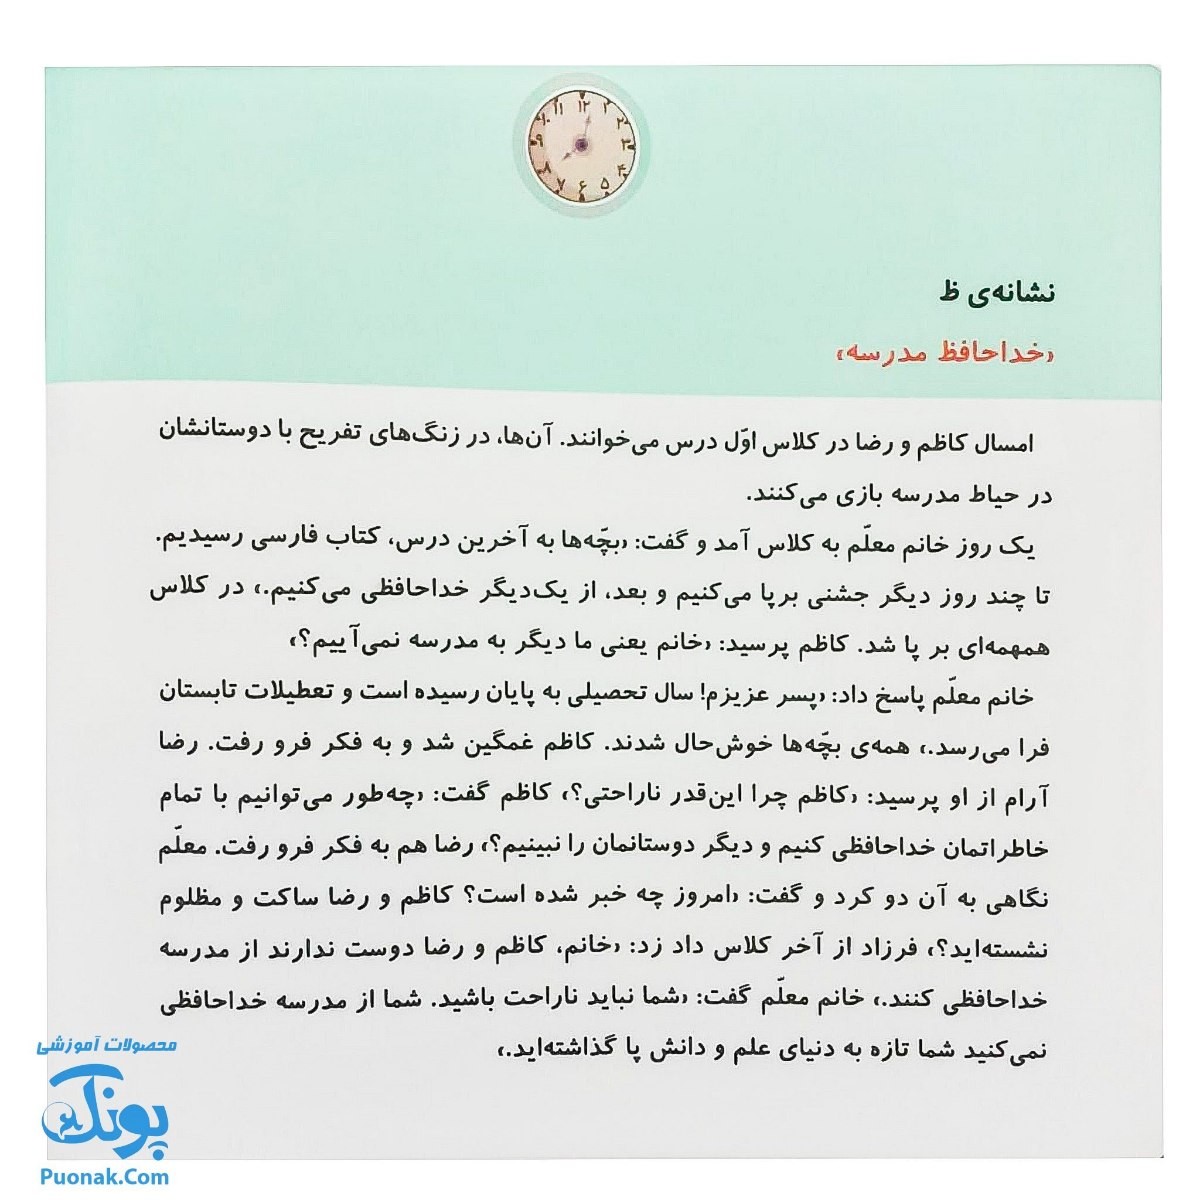 ۱۲
۱
۲
۳
۴
۵
۶
۷
۸
۹
۱۰
۱۱
نشانه‌ی ظ
«خداحافظ مدرسه»
امسال کاظم و رضا در کلاس اوّل درس می‌خوانند. آن‌ها، در زنگ‌های تفریح با دوستانشان
در حیاط مدرسه بازی می‌کنند.
یک روز خانم معلّم به کلاس آمد و گفت: «بچّه‌ها به آخرین درس، کتاب فارسی رسیدیم.
تا چند روز دیگر جشنی برپا می‌کنیم و بعد، از یک‌دیگر خداحافظی می‌کنیم.» در کلاس
همهمه‌ای بر پا شد. کاظم پرسید: «خانم یعنی ما دیگر به مدرسه نمی‌آییم؟»
خانم معلّم پاسخ داد: «پسر عزیزم! سال تحصیلی به پایان رسیده است و تعطیلات تابستان
فرا می‌رسد.» همه‌ی بچّه‌ها خوش‌حال شدند. کاظم غمگین شد و به فکر فرو رفت. رضا
آرام از او پرسید: «کاظم چرا این‌قدر ناراحتی؟» کاظم گفت: «چه‌طور می‌توانیم با تمام
خاطراتمان خداحافظی کنیم و دیگر دوستانمان را نبینیم؟» رضا هم به فکر فرو رفت. معلّم
نگاهی به آن دو کرد و گفت: «امروز چه خبر شده است؟ کاظم و رضا ساکت و مظلوم
نشسته‌اید؟» فرزاد از آخر کلاس داد زد: «خانم، کاظم و رضا دوست ندارند از مدرسه
خداحافظی کنند.» خانم معلّم گفت: «شما نباید ناراحت باشید. شما از مدرسه خداحافظی
نمی‌کنید شما تازه به دنیای علم و دانش پا گذاشته‌اید.»
محصولات آموزشی
پونک
Puonak.Com